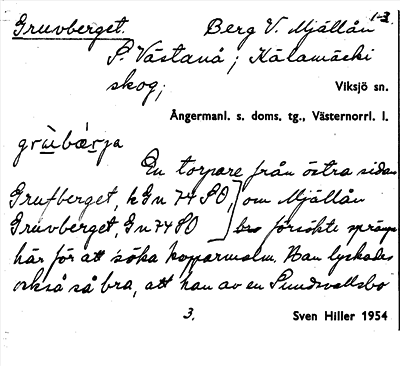 Gruvberget. Berg V. Mjällån 1-3.
S. Västanå; Kälamäcki
skog; Viksjö sn.
Ångermanl. s. doms. tg., Västernorrl. l.
grùbær̀ja
En torpare från östra sidan
Grufberget, kGn 74 SO, om Mjällån
Gruvberget, Gn 74 SO bro försökte spräng
här för att söka kopparmalm. Han lyckades
också så bra, att han av en Sundsvallsbo
3. Sven Hiller 1954